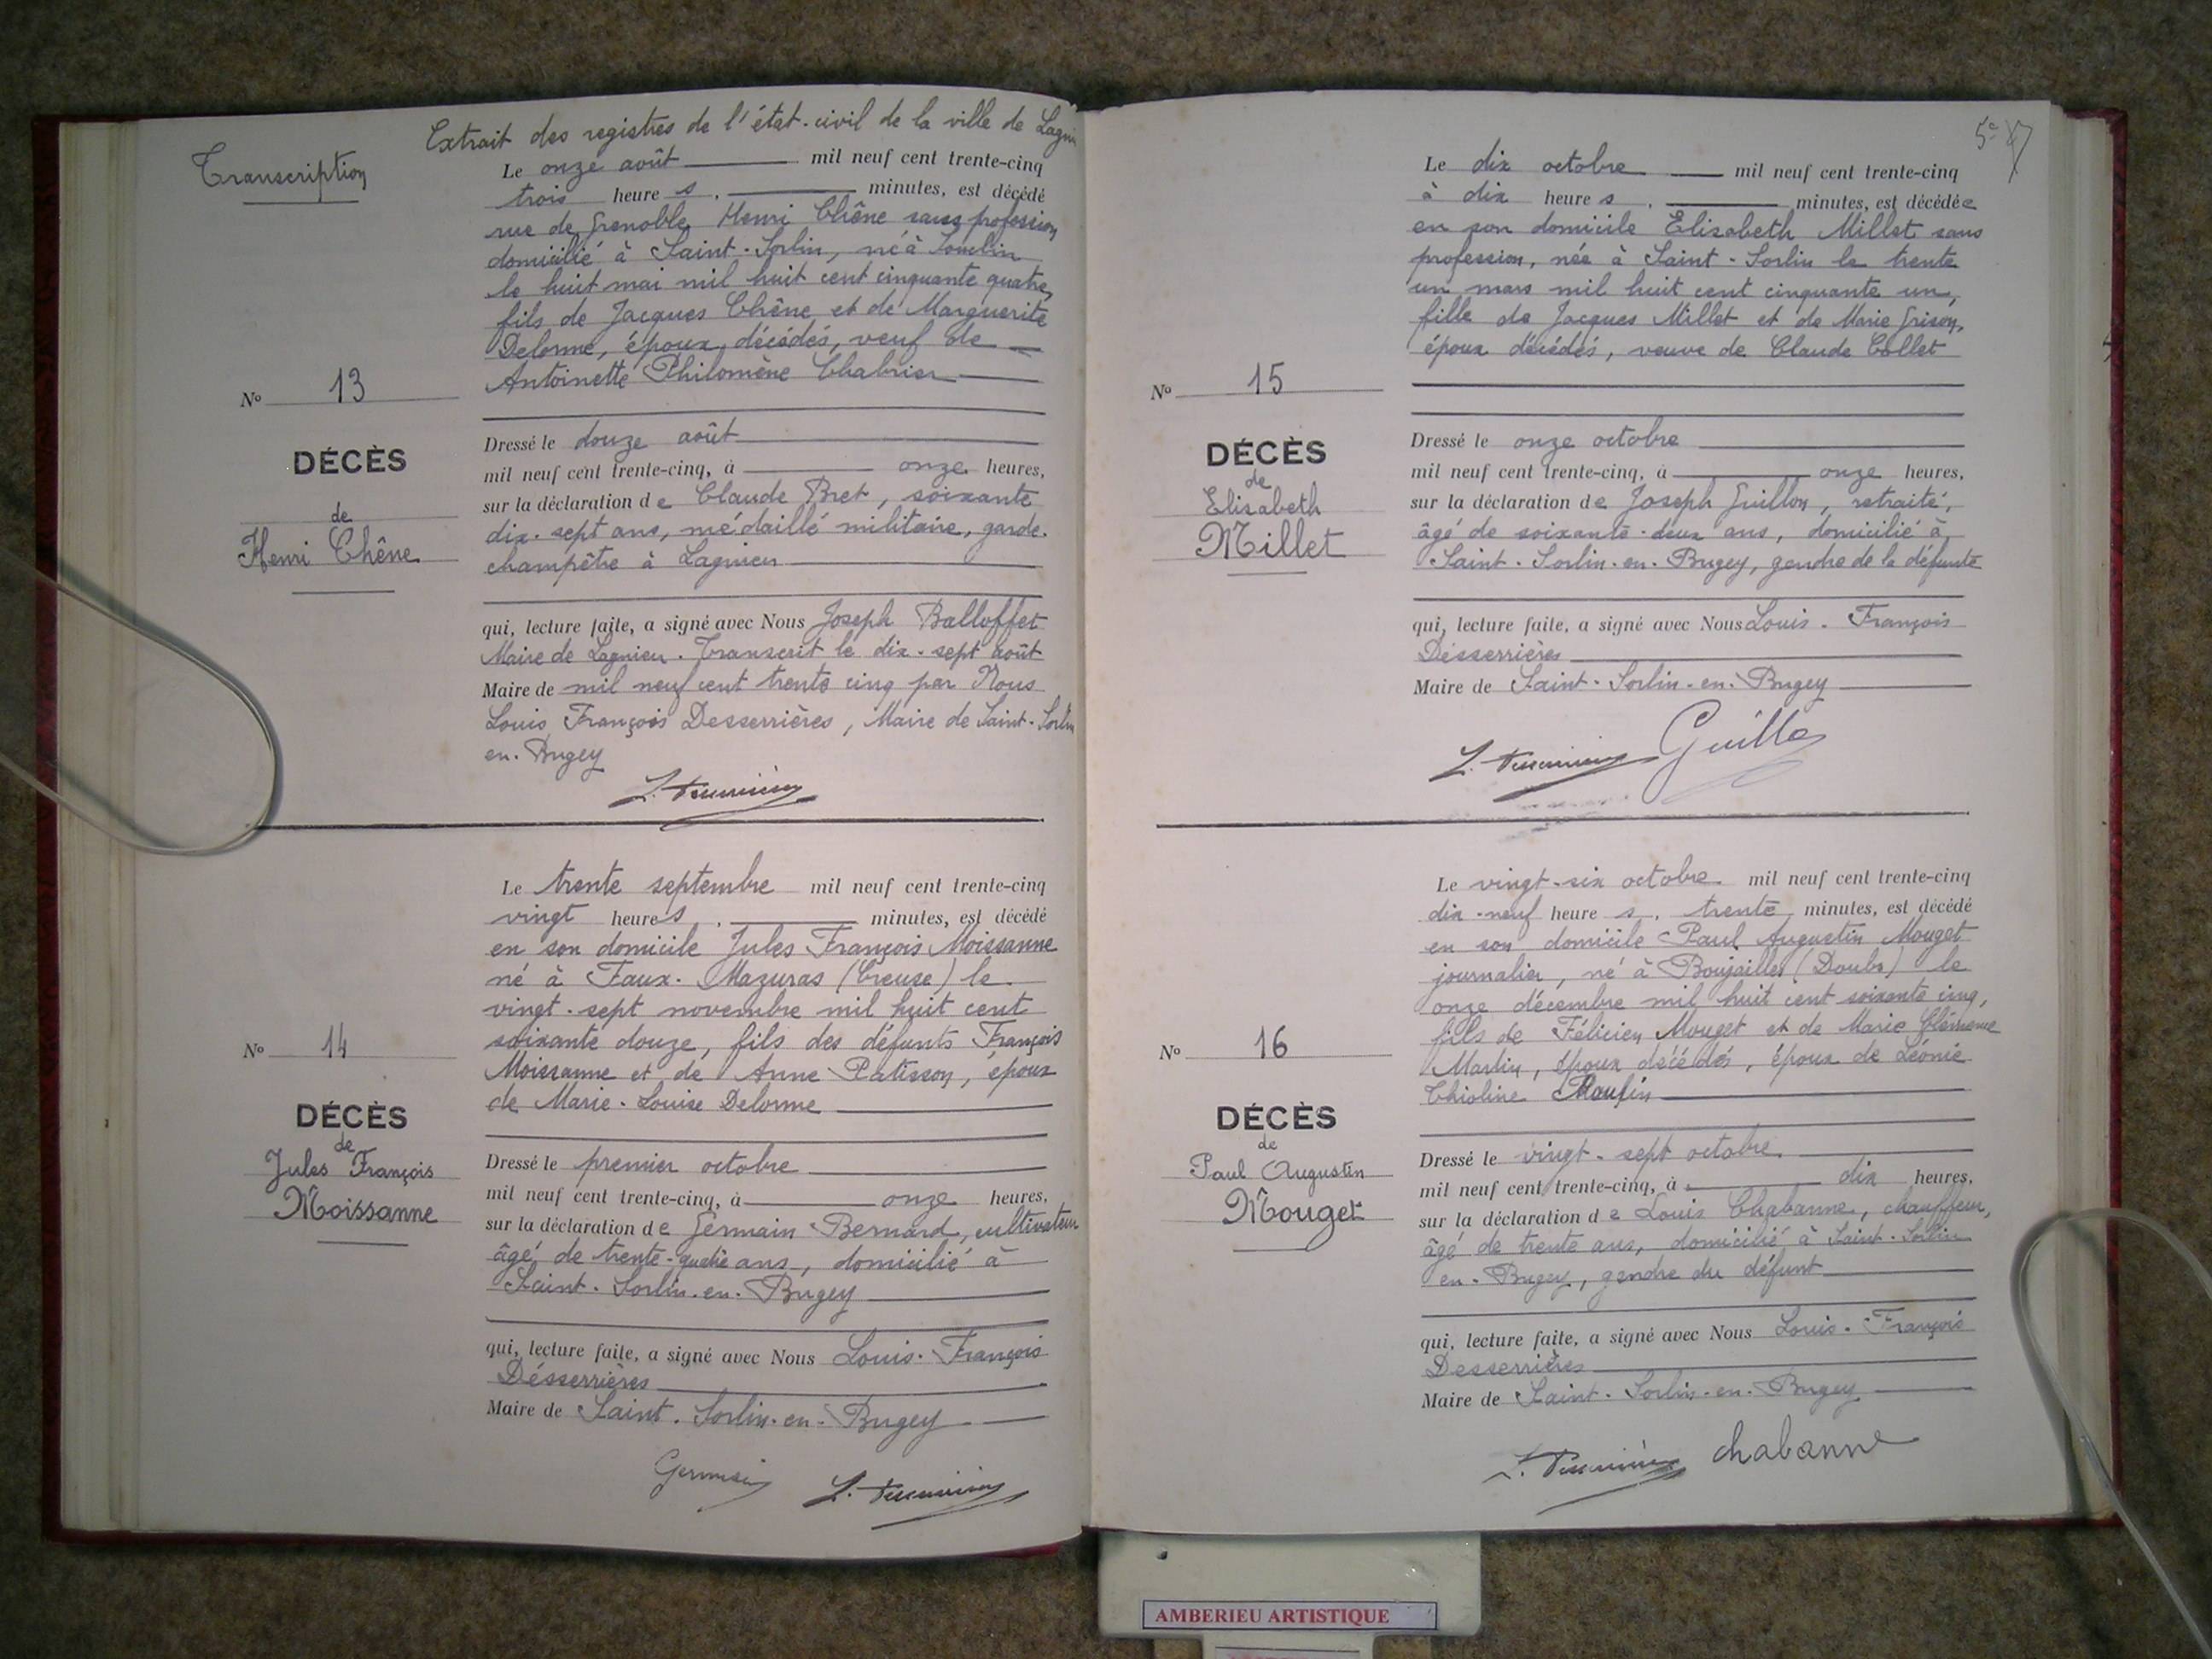 Transcription
Extrait des registres de l'état-civil de la ville de
Le onze août mil neuf cent trente-cinq
trois heures, minutes, est décédé
rue de Grenoble Henri Chêne sans profession
domicilié à Saint-Sorlin, né à
le huit mai mil huit cent cinquante quatre,
fils de Jacques Chêne et de Marguerite
Delorme, époux décédés, veuf de
Antoinette Philomène Chabrier
No 13
DÉCÈS
de
Henri Chêne
Dressé le douze août
mil neuf cent trente-cinq, à onze heures,
sur la déclaration de Claude Bret, soixante
dix-sept ans, médaillé militaire, garde-
champêtre à Lagnieu
qui, lecture faite, a signé avec Nous Joseph Balloffet
Maire de Lagnieu. Transcrit le dix-sept août
Maire de mil neuf cent trente cinq par Nous
Louis François Desserrières, Maire de Saint-Sorlin
en-Bugey
Le trente septembre mil neuf cent trente-cinq
vingt heures, minutes, est décédé
en son domicile Jules François Moissanne
né à Faux-Mazuras (Creuse) le
vingt-sept novembre mil huit cent
soixante douze, fils des défunts François
Moissanne et de Anne Patisson, époux
de Marie-Louise Delorme
No 14
DÉCÈS
de
Jules François
Moissanne
Dressé le premier octobre
mil neuf cent trente-cinq, à onze heures,
sur la déclaration de Germain Bernard, cultivateur
âgé de trente-quatre ans, domicilié à
Saint-Sorlin-en-Bugey
qui, lecture faite, a signé avec Nous Louis-François
Désserrières
Maire de Saint-Sorlin-en-Bugey
Germain L. Desserrières
Le dix octobre mil neuf cent trente-cinq
à dix heures, minutes, est décédée
en son domicile Elisabeth Millet sans
profession, née à Saint-Sorlin le trente
un mars mil huit cent cinquante un,
fille de Jacques Millet et de Marie Grison,
époux décédés, veuve de Claude Collet
No 15
DÉCÈS
de
Elisabeth
Millet
Dressé le onze octobre
mil neuf cent trente-cinq, à onze heures,
sur la déclaration de Joseph Guillon, retraité,
âgé de soixante-deux ans, domicilié à
Saint-Sorlin-en-Bugey, gendre de la défunte
qui, lecture faite, a signé avec Nous Louis-François
Désserrières
Maire de Saint-Sorlin-en-Bugey
L. Desserrières Guillo
Le vingt-six octobre mil neuf cent trente-cinq
dix-neuf heures, trente minutes, est décédé
en son domicile Paul Augustin Mouget
journalier, né à Boujailles (Doubs) le
onze décembre mil huit cent soixante cinq,
fils de Félicien Mouget et de Marie Clémence
Martin, époux décédés, époux de Léonie
No 16
DÉCÈS
de
Paul Augustin
Mouget
Dressé le vingt-sept octobre
mil neuf cent trente-cinq, à dix heures,
sur la déclaration de Louis Chabanne, chauffeur,
âgé de trente ans, domicilié à Saint-Sorlin
en-Bugey, gendre du défunt
qui, lecture faite, a signé avec Nous Louis-François
Desserrières
Maire de Saint-Sorlin-en-Bugey
L. Desserrières chabanne
AMBERIEU ARTISTIQUE